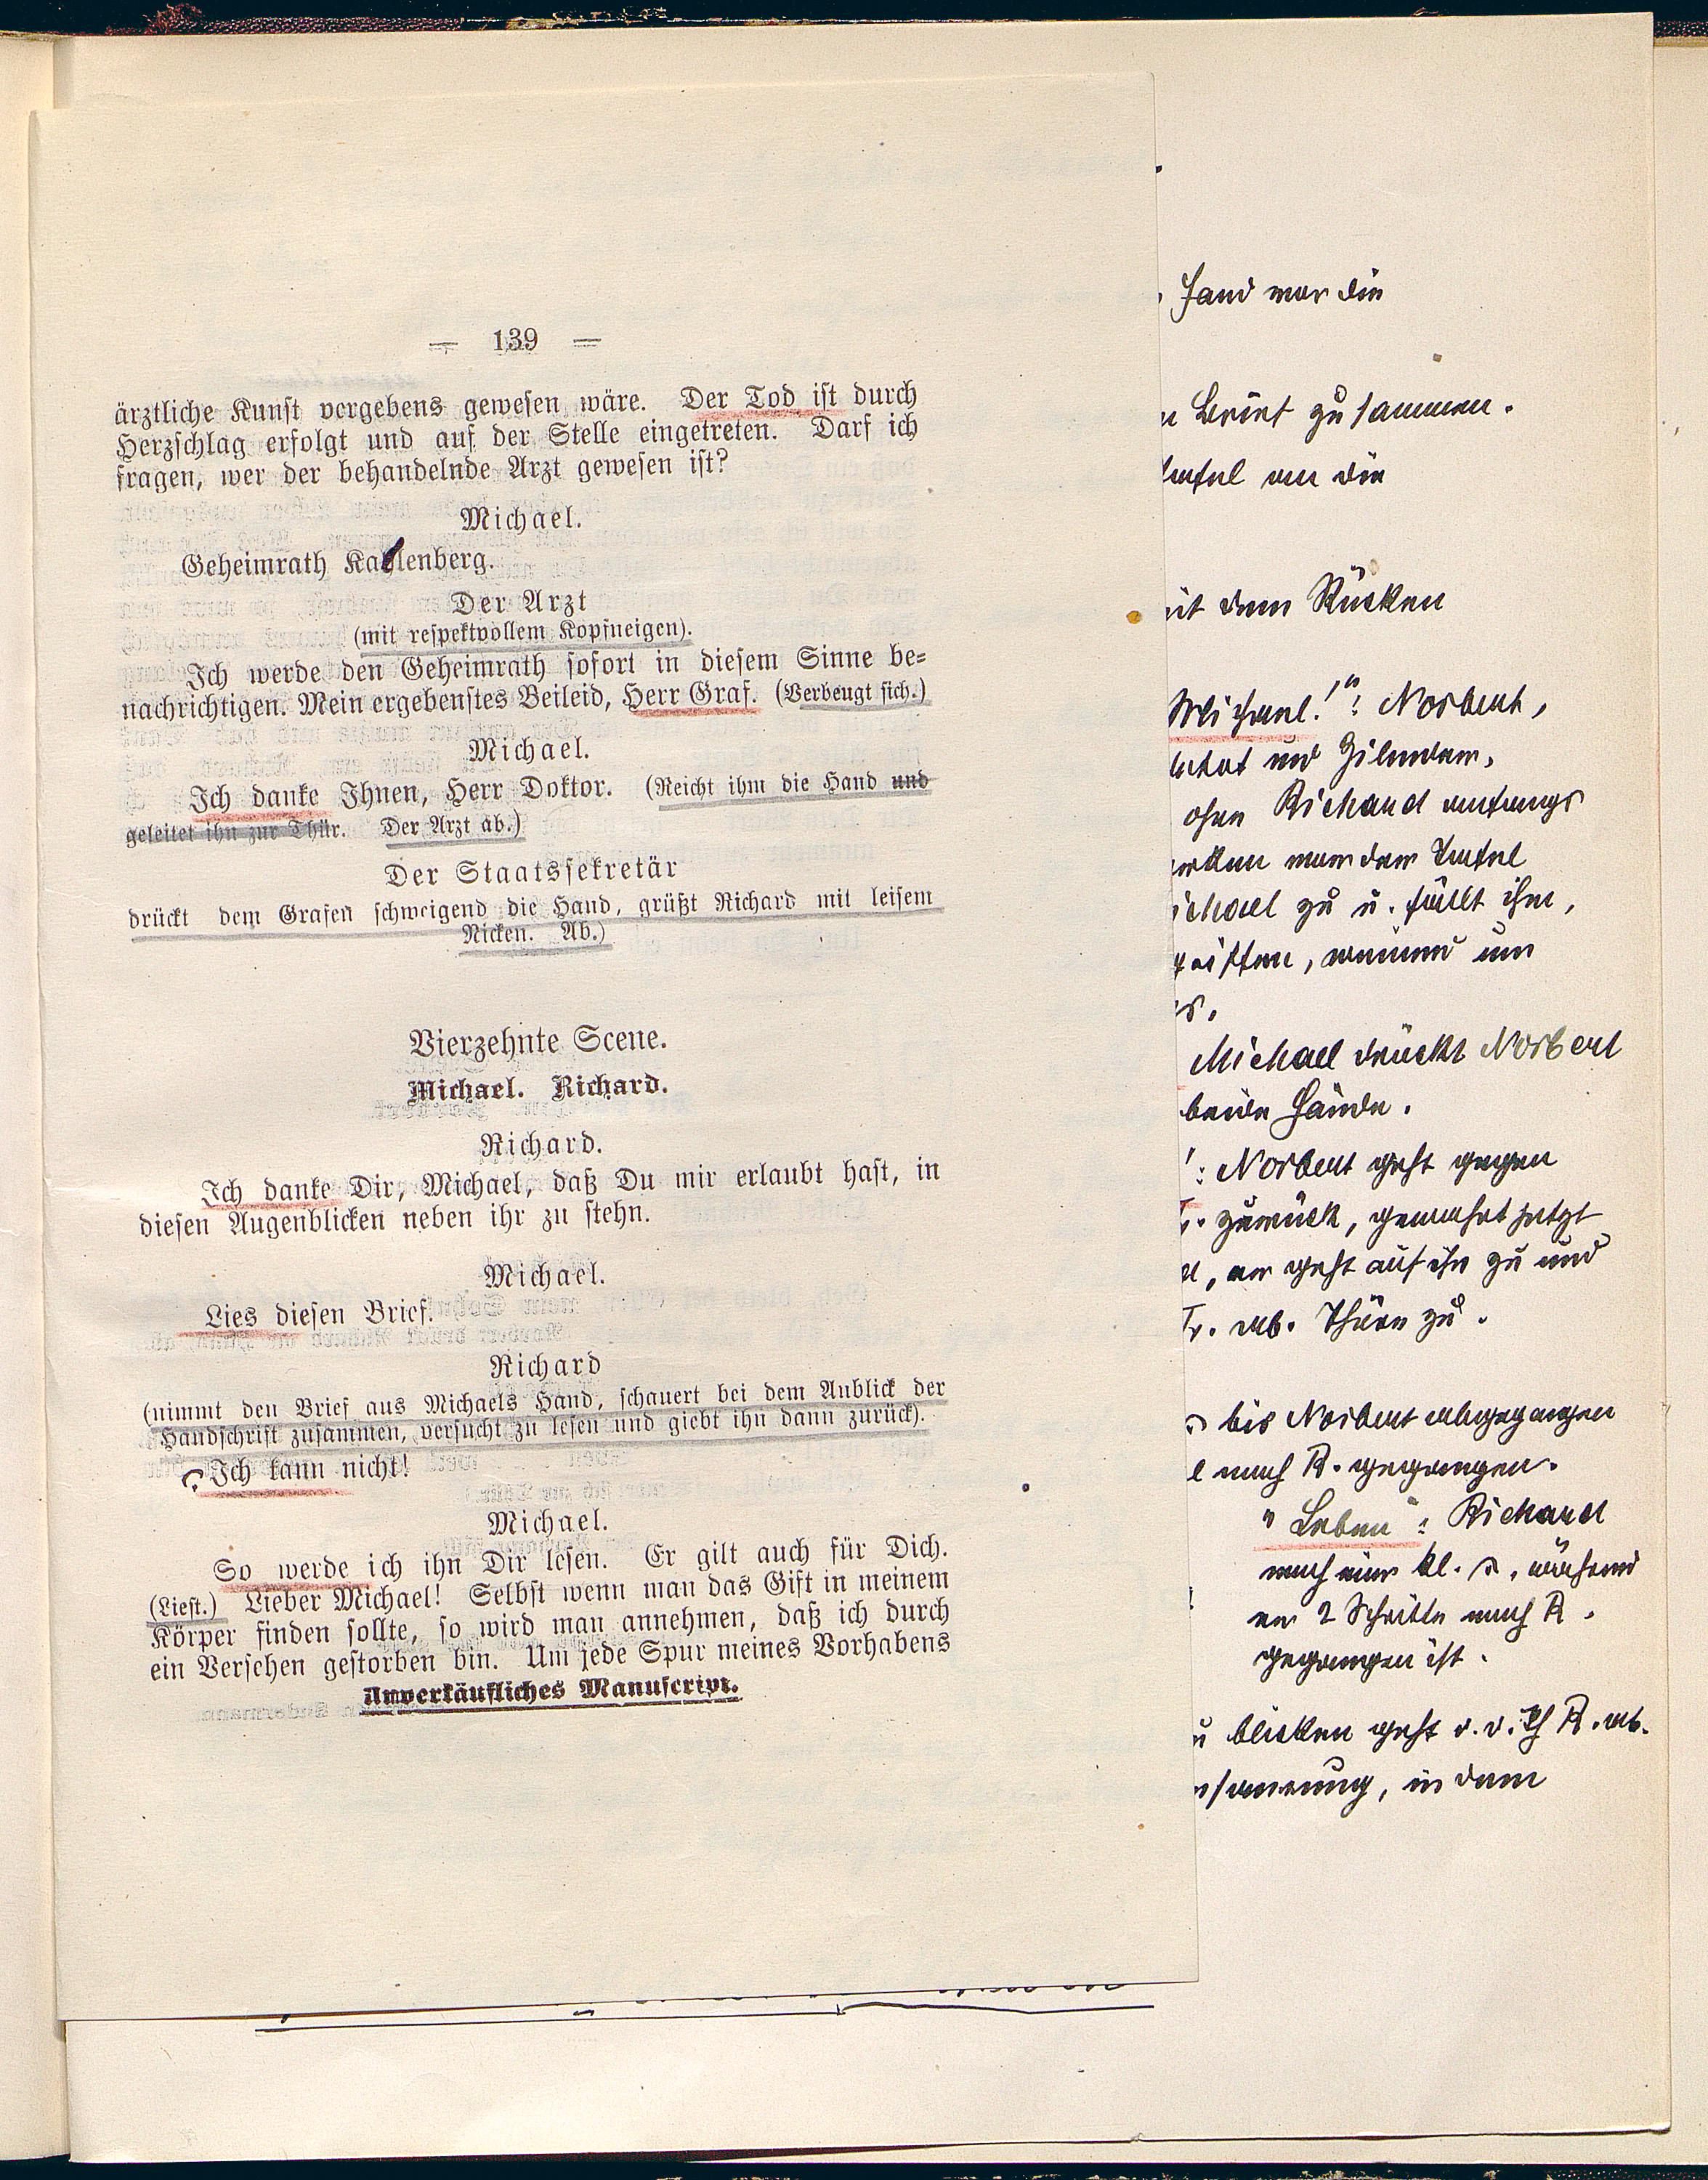 — 139 —
ärztliche Kunst vergebens gewesen wäre. Der Tod ist durch
Herzschlag erfolgt und auf der Stelle eingetreten. Darf ich
fragen, wer der behandelnde Arzt gewesen ist?
Michael.
Geheimrath Kahlenberg.
Der Arzt
(mit respektvollem Kopfneigen).
Ich werde den Geheimrath sofort in diesem Sinne be=
nachrichtigen. Mein ergebenstes Beileid, Herr Graf. (Verbeugt sich.)
Michael.
Ich danke Ihnen, Herr Doktor. (Reicht ihm die Hand und
geleitet ihn zur Thür. Der Arzt ab.)
Der Staatssekretär
drückt dem Grafen schweigend die Hand, grüßt Richard mit leisem
Nicken. Ab.)
Vierzehnte Scene.
Michael. Richard.
Richard.
Ich danke Dir, Michael, daß Du mir erlaubt hast, in
diesen Augenblicken neben ihr zu stehn.
Michael.
Lies diesen Brief.
Richard
(nimmt den Brief aus Michaels Hand, schauert bei dem Anblick der
Handschrift zusammen, versucht zu lesen und giebt ihn dann zurück).
Ich kann nicht!
Michael.
So werde ich ihn Dir lesen. Er gilt auch für Dich.
(Liest.) Lieber Michael! Selbst wenn man das Gift in meinem
Körper finden sollte, so wird man annehmen, daß ich durch
ein Versehen gestorben bin. Um jede Spur meines Vorhabens
Unverkäufliches Manuscript.
Hand vor die
zusammen.
an die
dem Rücken
Michael!": Norbert,
und
ohne Richard anfangs
zu u. fällt ihm,
um
Michael drückt Norbert
beide Hände.
: Norbert geht gegen
zurück, gewahrt jetzt
, er geht auf ihn zu und
ab. Thüre zu.
bis Norbert abgegangen
nach R. gegangen.
"Leben": Richard
nach einer kl. während
er 2 Schritte nach R.
gegangen ist.
blicken geht d. d. Th R. ab.
, in dem